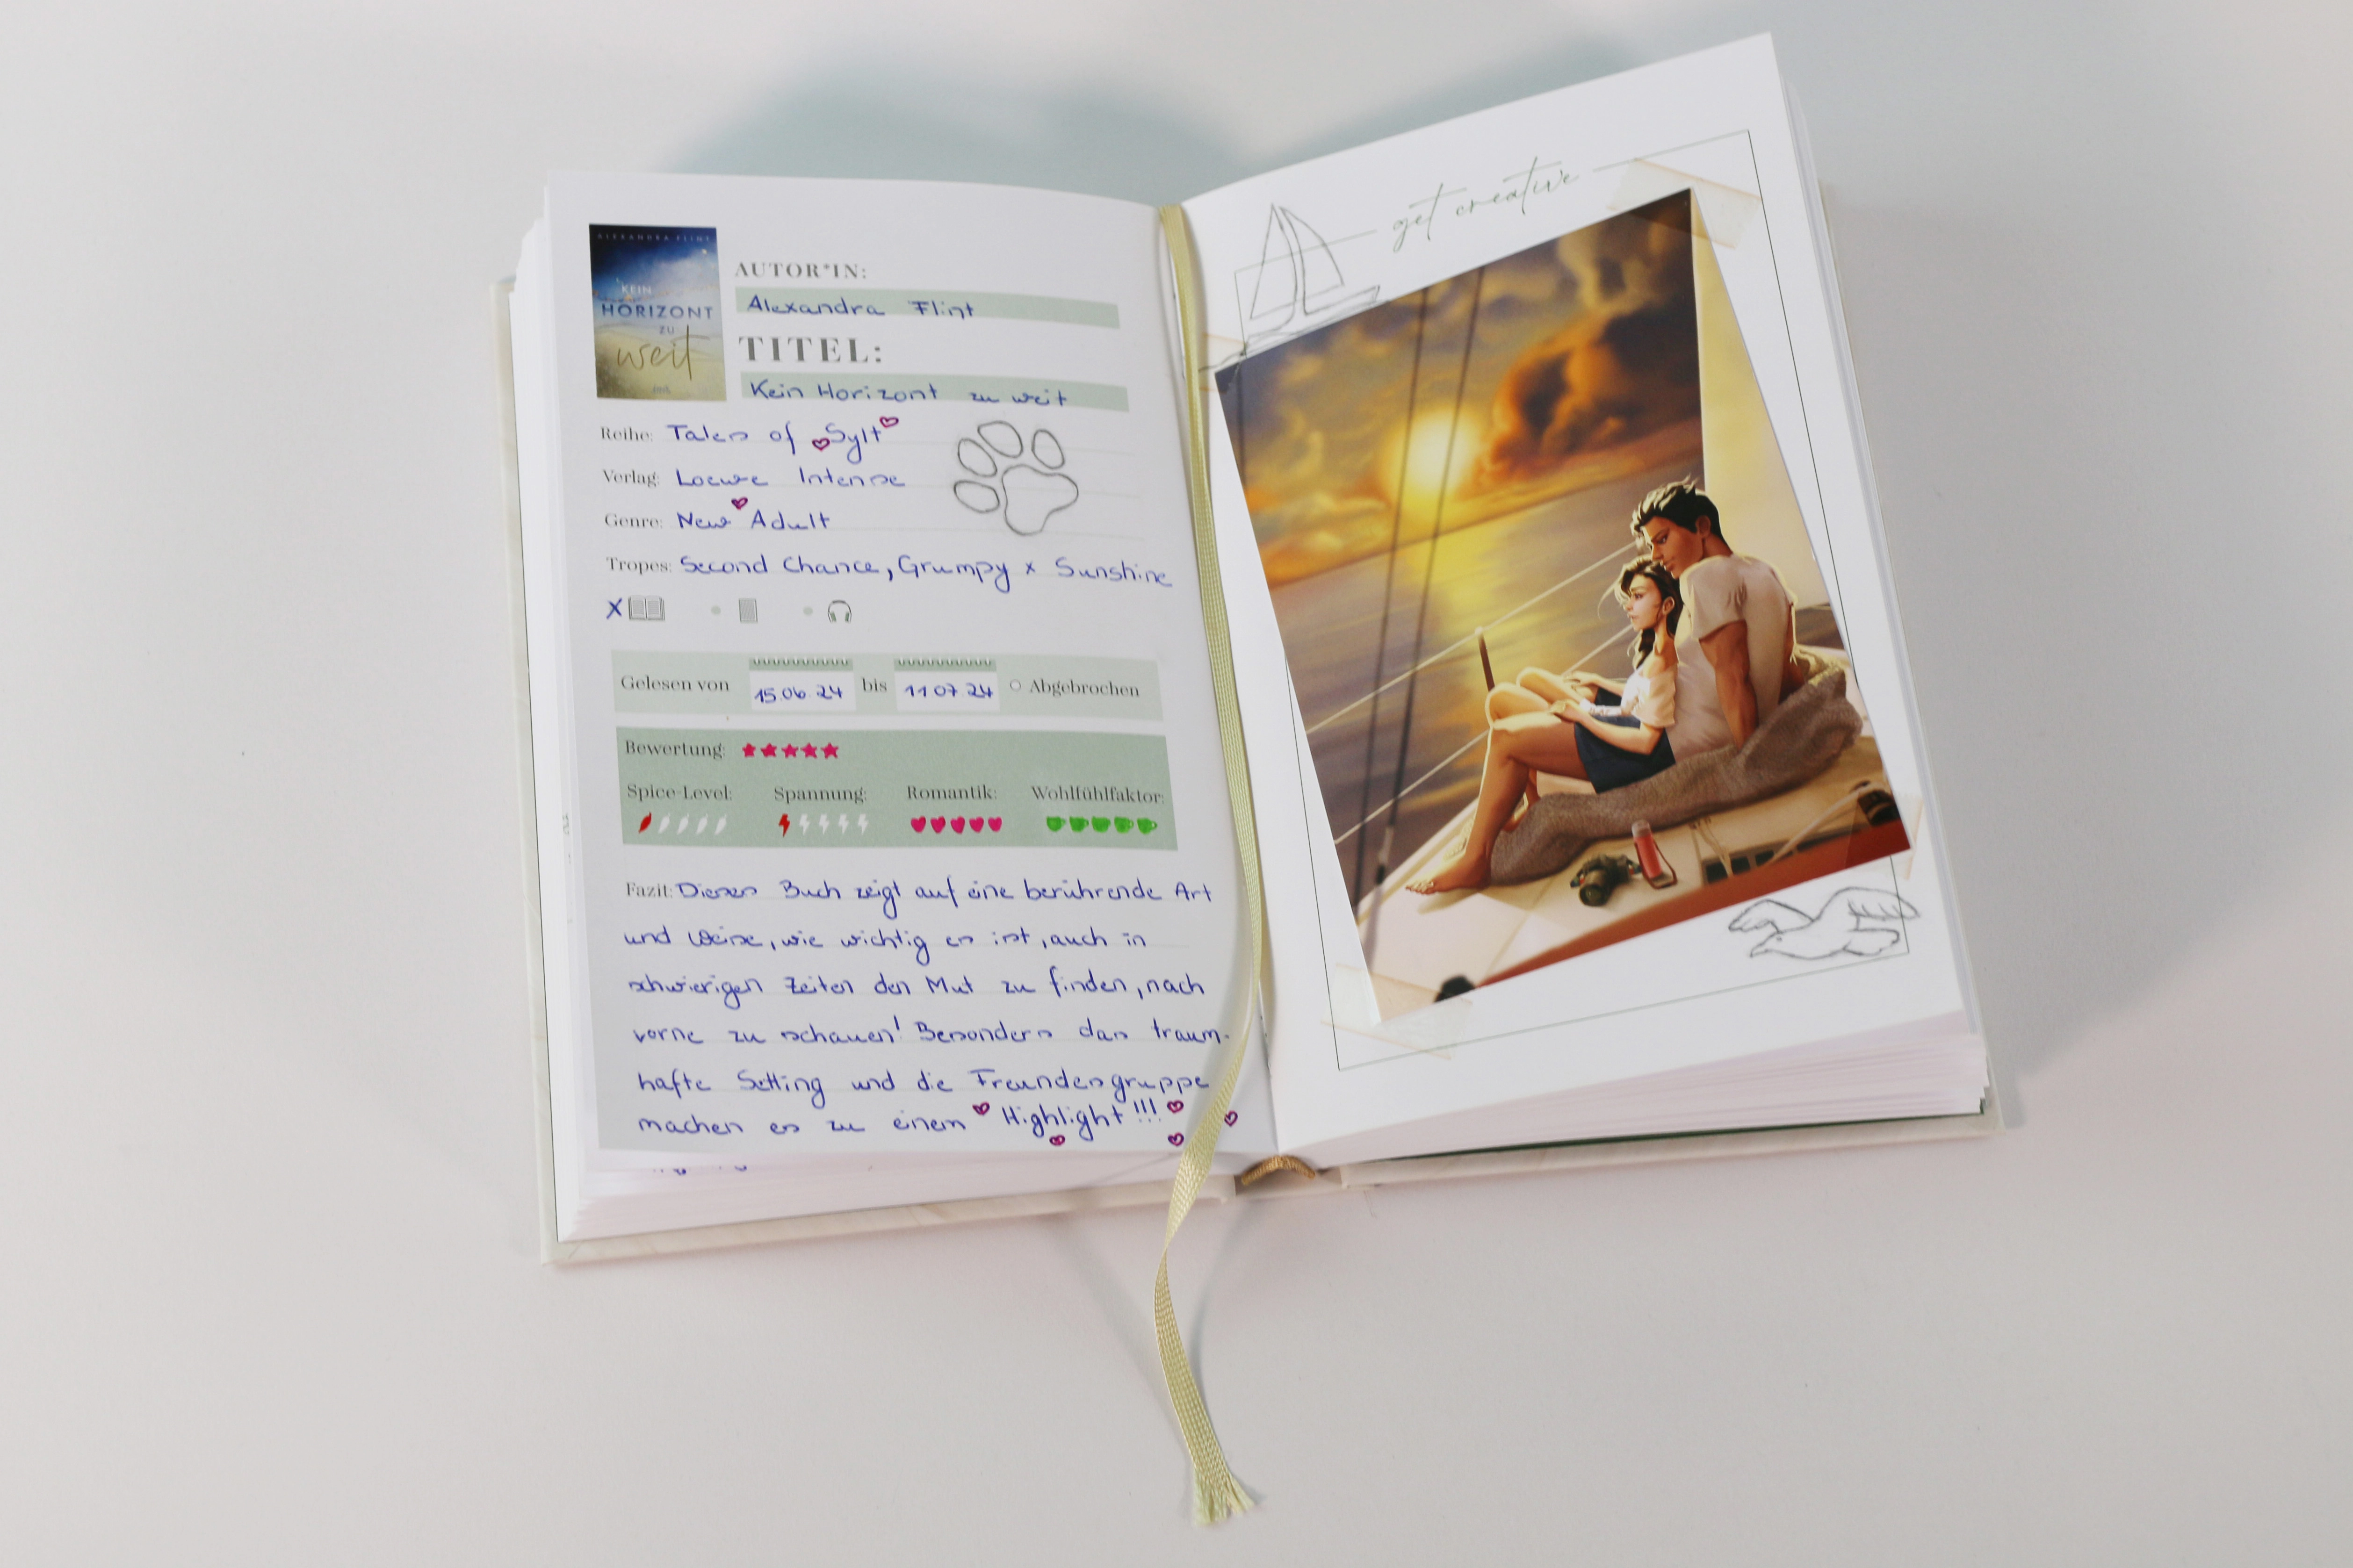 ALEXANDRA FLINT
KEIN
HORIZONT
ZU
weit
AUTOR*IN:
Alexandra Flint
TITEL:
Kein Horizont zu weit
Reihe: Tales of Sylt
Verlag: Loewe Intense
Genre: New Adult
Tropes: Second Chance, Grumpy x Sunshine
X
Gelesen von 15.06.24 bis 11.07.24 Abgebrochen
Bewertung:
Spice-Level: Spannung: Romantik: Wohlfühlfaktor:
Fazit: Dieses Buch zeigt auf eine berührende Art
und Weise, wie wichtig es ist, auch in
schwierigen Zeiten den Mut zu finden, nach
vorne zu schauen! Besonders das traum-
hafte Setting und die Freundesgruppe
machen es zu einem Highlight!!!
get creative